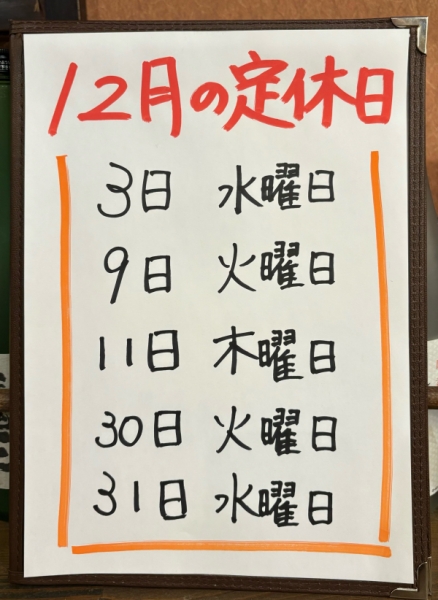 12月の定休日
3日 水曜日
9日 火曜日
11日 木曜日
30日 火曜日
31日 水曜日